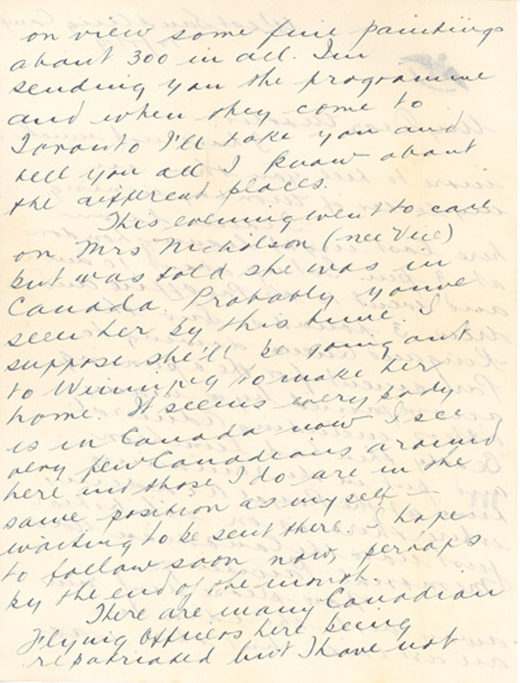 on view some fine paintings
about 300 in all. I'm
sending you the programme
and when they come to
Toronto I'll take you and
tell you all I know about
the different places.
This evening went to call
on Mrs Nicholson (nee Vice)
but was told she was in
Canada. Probably you've
seen her by this time. I
suppose she'll be going out
to Winnipeg to make her
home. It seems everybody
is in Canada now I see
very few Canadians around
here and those I do are in the
same position as myself -
waiting to be sent there. I hope
to follow soon now, perhaps
by the end of the month.
There are many Canadian
Flying Officers here being
repatriated but I have not